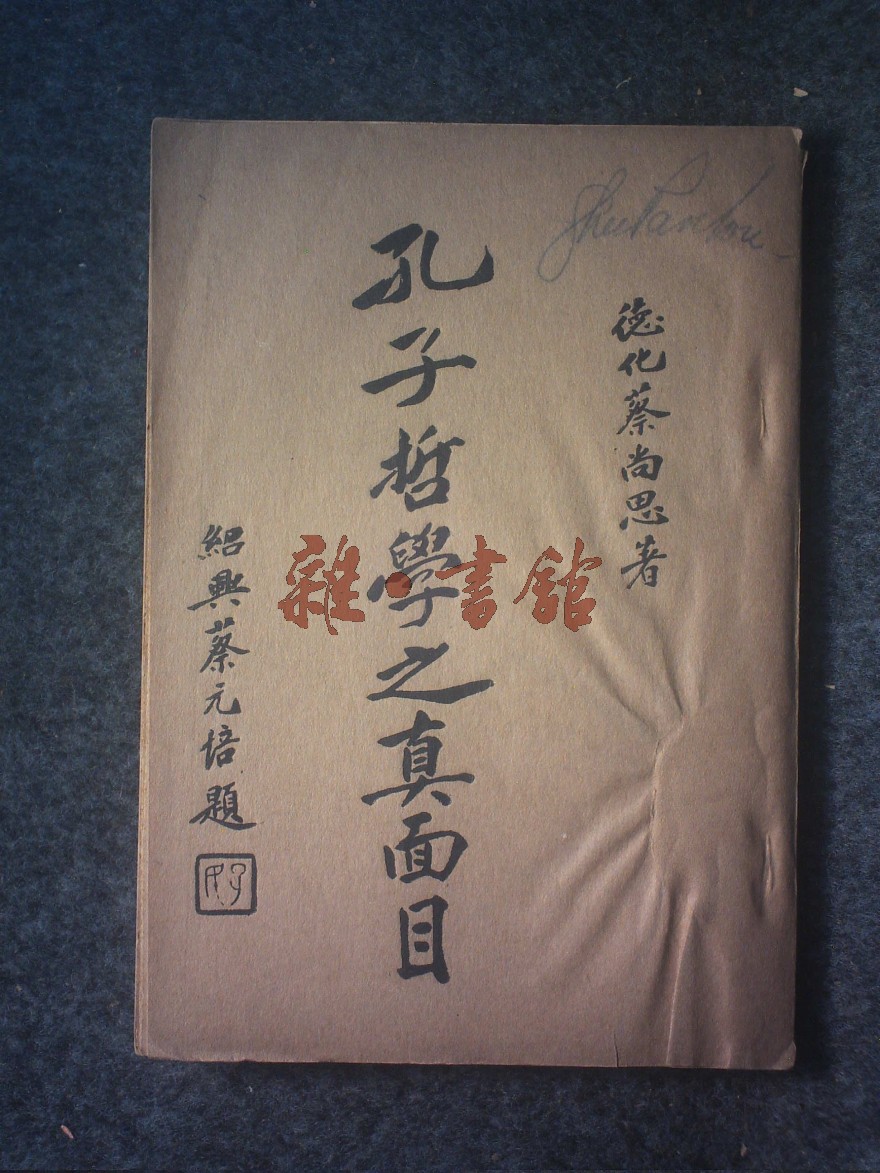 德化蔡尚思著
孔子哲學之真面目
紹興蔡元培題
雜·書館